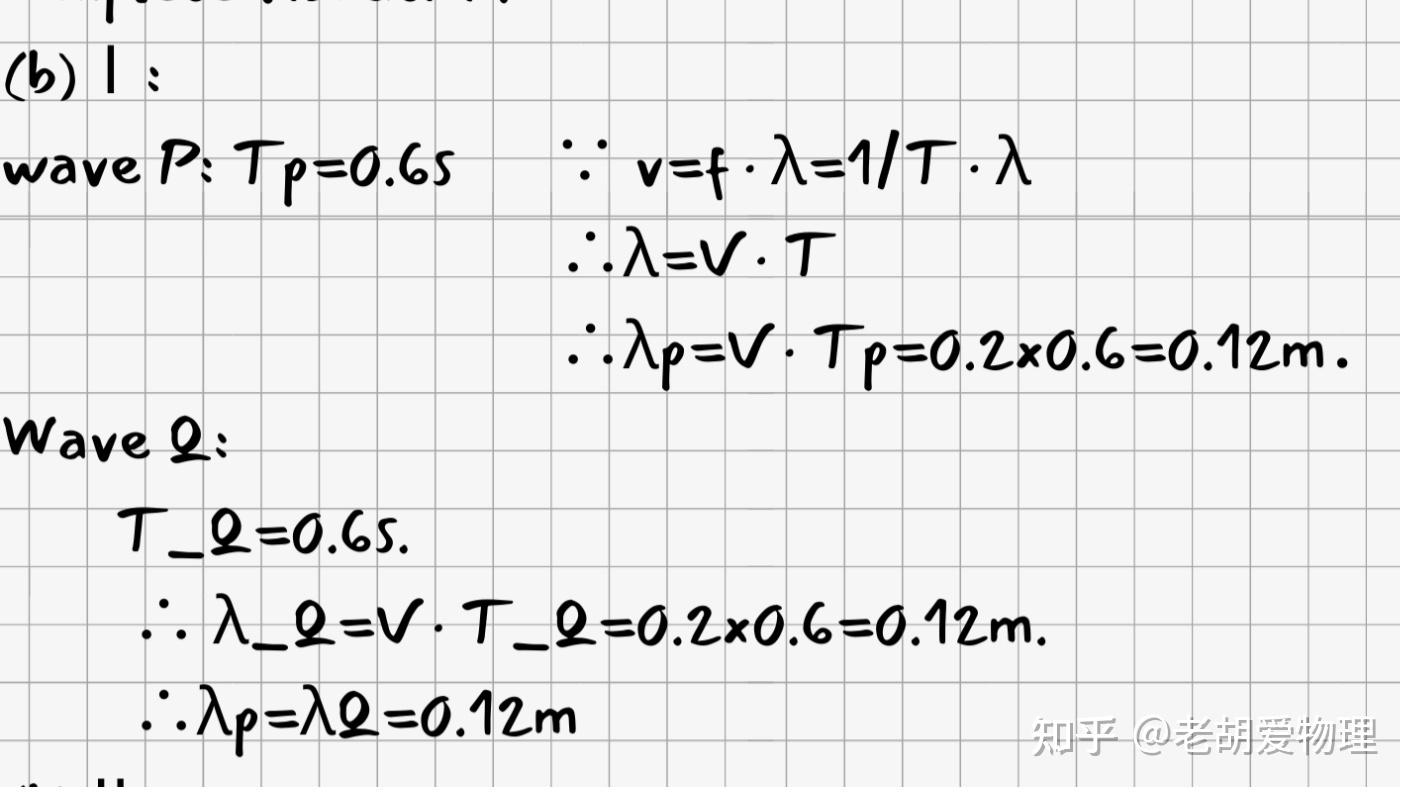 (b) 1 :
wave P: Tp=0.6s ∵ v=f·λ=1/T·λ
∴λ=V·T
∴λp=V·Tp=0.2x0.6=0.12m.
Wave Q:
T_Q=0.6s.
∴ λ_Q=V·T_Q=0.2x0.6=0.12m.
∴λp=λQ=0.12m
知乎 @老胡爱物理